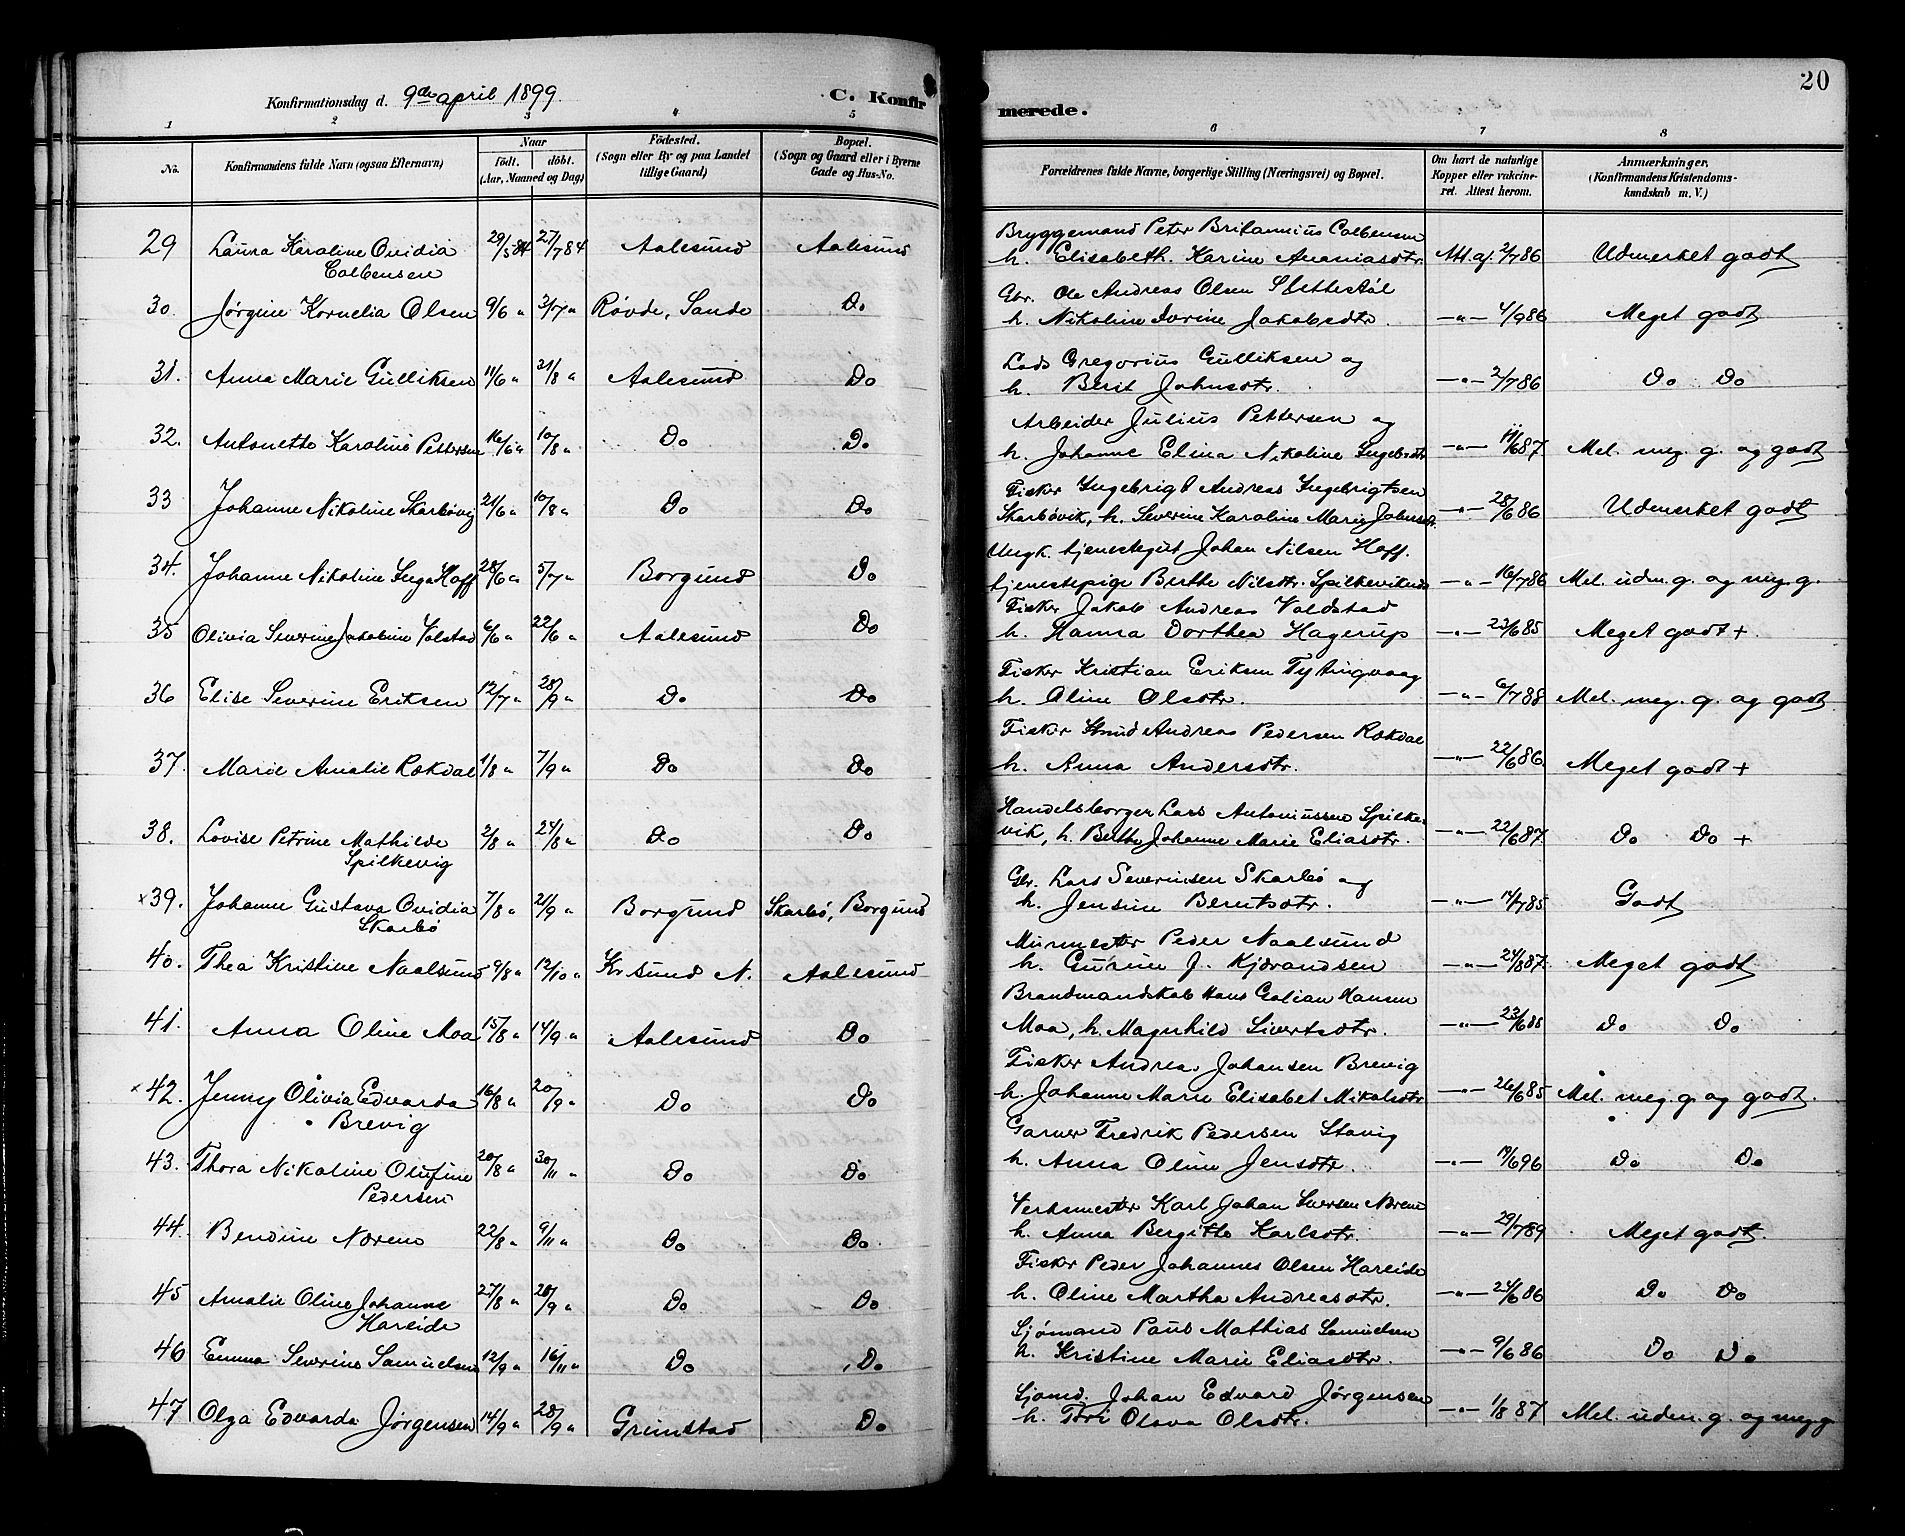 Konfirmationsdag d. 9de april 1899.
C. Konfir
merede.
20
1 2 3 4 5 6 7 8
No.
Konfirmandens fulde Navn (ogsaa Efternavn)
Naar
födt. döbt.
(Aar, Maaned og Dag)
Födested.
(Sogn eller By og paa Landet
tillige Gaard)
Bopæl.
(Sogn og Gaard eller i Byerne
Gade og Hus-No.
Forældrenes fulde Navne, borgerlige Stilling (Næringsvei) og Bopæl.
Om havt de naturlige
Kopper eller vakcine-
ret. Attest herom.
Anmærkninger.
(Konfirmandens Kristendoms-
kundskab m. V.)
29 Laura Karoline Ovidia 29/5 84 27/7 84 Aalesund Aalesund
Colbensen
Bryggemand Peter Britannius Colbensen
h. Elisabeth Karine Ananiasdtr. Att. af. 2/7 86 Udmerket godt
30. Jørgine Kornelia Olsen 9/6 " 3/7 " Røvde, Sande Do
Gbr. Ole Andreas Olsen Slettestøl
h. Nikoline Ivrine Jakobsdtr. —"— 4/9 86 Meget godt
31. Anna Marie Gulliksen 11/6 " 31/8 " Aalesund Do
Lods Gregorius Gulliksen og
h. Berit Johnsdtr. —"— 2/7 86 Do Do
32. Antonette Karoline Pettersen 16/6 " 10/8 " Do Do
Arbeider Julius Pettersen og
h. Johanne Elina Nikoline Ingebrdtr —"— 11/6 87 Mel. meg. g. og godt
33 Johanne Nikoline Skarbøvig 21/6 " 10/8 " Do Do
Fisker Ingebrigt Andreas Ingebrigtsen
Skarbøvik, h. Severine Karoline Marie Johnsdt. —"— 28/6 86 Udmerket godt
34. Johanne Nikoline Inga Hoff 28/6 " 5/7 " Borgund Do
Ungk. tjenestegut Johan Nilsen Hoff.
tjenestepige Berthe Nilsdtr. Spilkeviknes —"— 16/7 86 Mel. udm. g. og meg. g.
35 Olivia Severine Jakobine Volstad 6/6 " 22/6 " Aalesund Do
Fisker Jakob Andreas Voldstad
h. Hanna Dorthea Hagerup —"— 23/6 85 Meget godt +.
36 Elise Severine Eriksen 12/7 " 28/9 " Do Do
Fisker Kristian Eriksen Tytingvaag
h. Oline Olsdtr. —"— 6/7 88 Mel. meg. g. og godt
37. Marie Amalie Rokdal 1/8 " 7/9 " Do Do
Fisker Knud Andreas Pedersen Rokdal
h. Anna Andersdtr. —"— 22/6 86. Meget godt +
38. Lovise Petrine Mathilde 2/8 " 24/8 " Do Do
Spilkevig
Handelsborger Lars Antoniussen Spilke-
vik, h. Berthe Johanne Marie Eliasdtr. —"— 22/6 87. Do Do +
×39. Johanne Gustava Ovidia 7/8 " 21/9 " Borgund Skarbø, Borgund
Skarbø
Gbr. Lars Severinsen Skarbø og
h. Jensine Berntsdtr. —"— 14/7 85 Godt
40. Thea Kristine Naalsund 9/8 " 12/10 " Kr.sund N. Aalesund
Murmester Peder Naalsund
h. Gurine J. Kjørandsen —"— 24/8 87. Meget godt
41. Anna Oline Moa 15/8 " 14/9 " Aalesund Do
Brandmandskab Hans Galian Hansen
Moa, h. Magnhild Sivertsdtr. —"— 23/6 88 Do Do
×42. Jenny Olivia Edvarda 16/8 " 20/9 " Do Do
Brevig
Fisker Andreas Johansen Brevig
h. Johanne Marie Elisabet Mikalsdtr —"— 26/6 85 Mel. meg. g. og godt.
43. Thora Nikoline Olufine 20/8 " 30/11 " Do Do
Pedersen
Garver Fredrik Pedersen Stavig
h. Anna Oline Jensdtr. —"— 19/6 96 Do Do
44. Bendine Norens 22/8 " 9/11 " Do Do.
Verksmester Karl Johan Iversen Norene
h. Anna Bergitte Karlsdtr. —"— 29/7 89 Meget godt.
45 Amalie Oline Johanne 27/8 " 28/9 " Do Do
Hareide
Fisker Peder Johannes Olsen Hareide
h. Oline Martha Andreasdtr. —"— 24/6 86 Do Do
46 Emma Severine Samuelsen 12/9 " 16/11 " Do Do
Sjømand Paul Mathias Samuelsen
h. Kristine Marie Eliasdtr. —"— 9/6 86 Do Do
47 Olga Edvarda Jørgensen 14/9 " 28/9 " Grimstad Do
Sjømd. Johan Edvard Jørgensen
h. Tori Olava Olsdtr. —"— 1/8 87 Mel. udm. g. og meg. g.